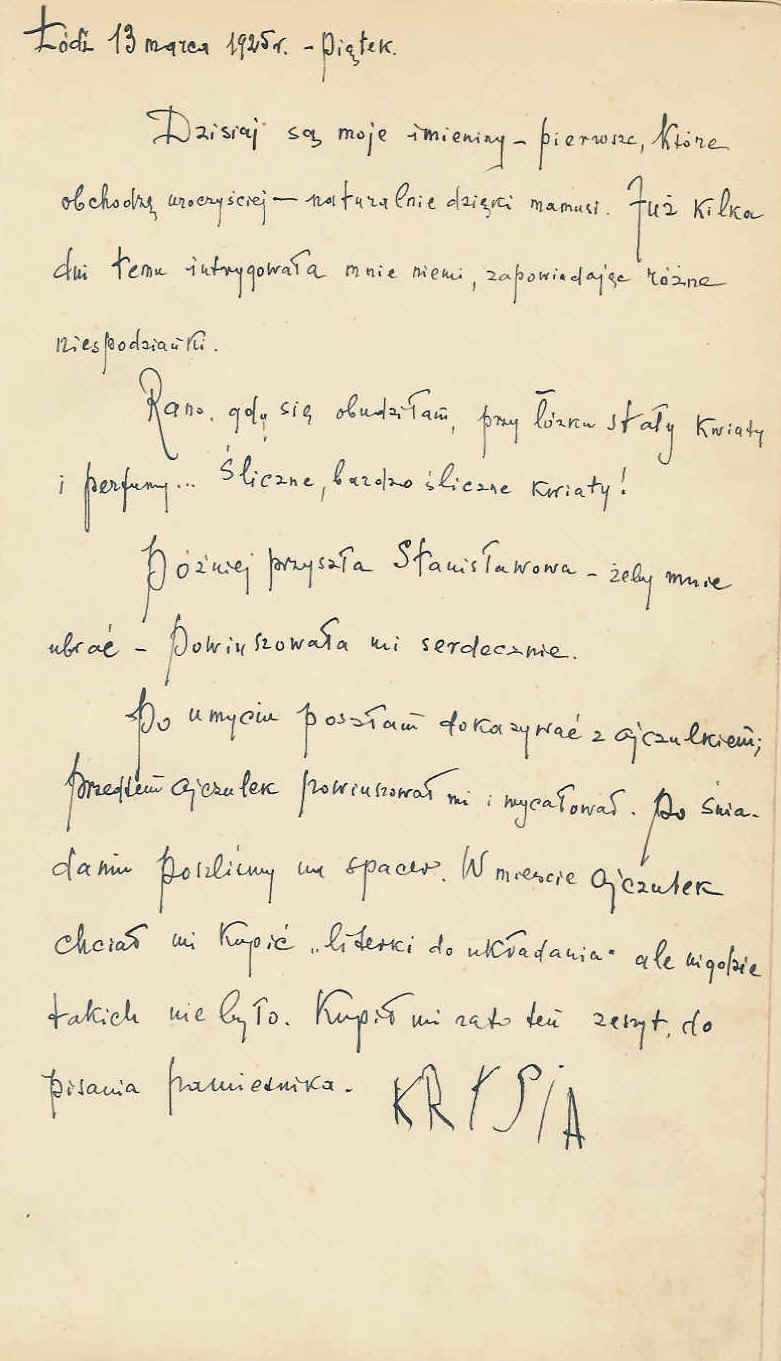 Łódź 13 marca 1925r. - Piątek.
Dzisiaj są moje imieniny - pierwsze, które
obchodzę uroczyściej - naturalnie dzięki mamusi. Już kilka
dni temu intrygowała mnie niemi, zapowiadając różne
niespodzianki.
Rano, gdy się obudziłam, przy łóżku stały kwiaty
i perfumy... Śliczne, bardzo śliczne kwiaty!
Później przyszła Stanisławowa - żeby mnie
ubrać - Powinszowała mi serdecznie.
Po umyciu poszłam dokazywać z ojczulkiem;
przedtem ojczulek powinszował mi i wycałował. Po śnia-
daniu poszliśmy na spacer. W mieście ojczulek
chciał mi kupić „literki do układania" ale nigdzie
takich nie było. Kupił mi zato ten zeszyt, do
pisania pamiętnika.
KRYSIA